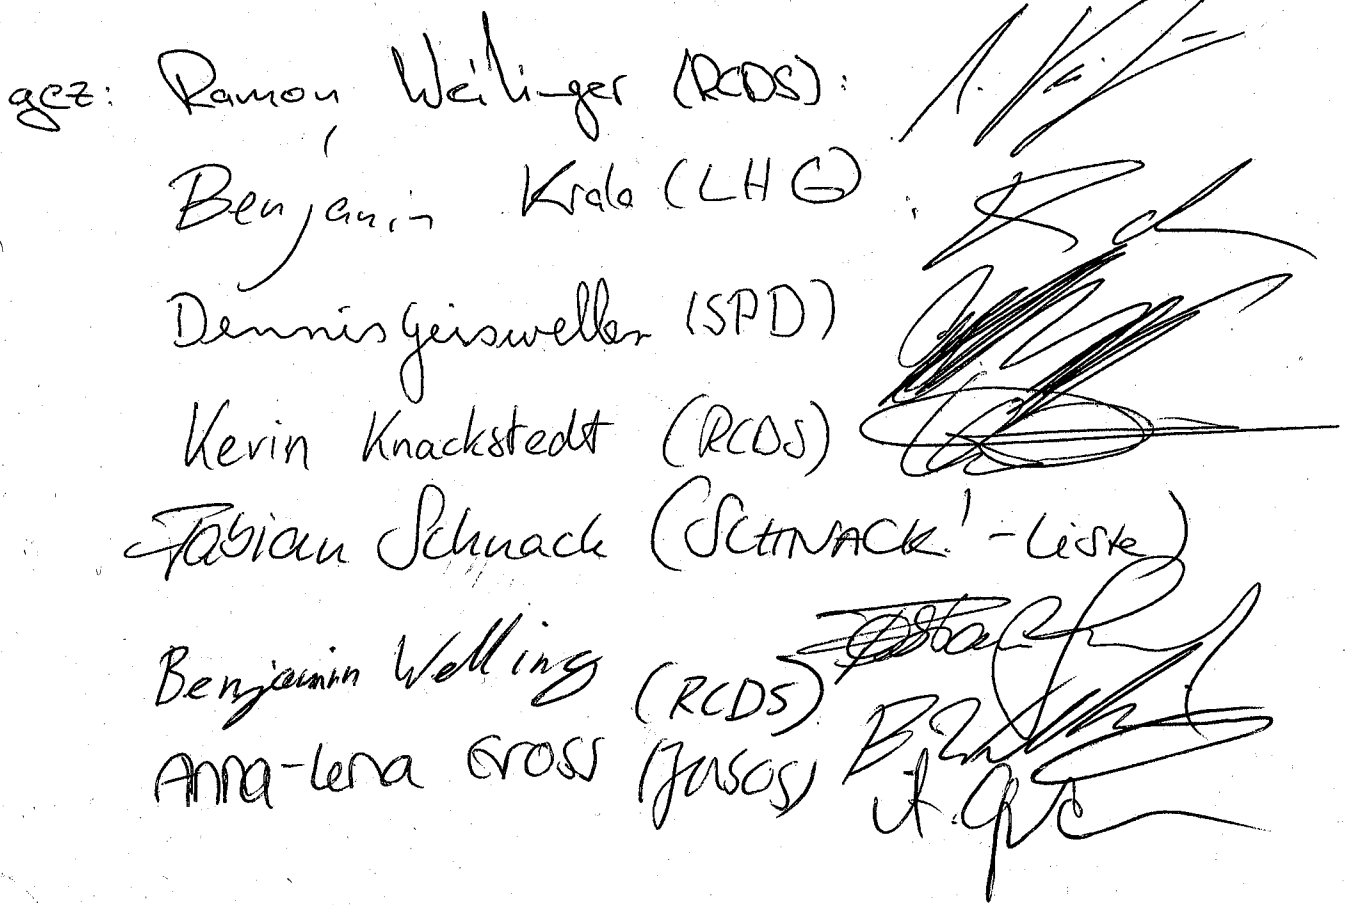 gez: Ramon, Weilinger (RCDS):
Benjamin Krala (LHG)
Dennis Geisweller (SPD)
Kevin Knackstedt (RCDS)
Fabian Schnack (SCHNACK!-Liste)
Benjamin Welling (RCDS)
Anna-Lena Gross (Jusos)